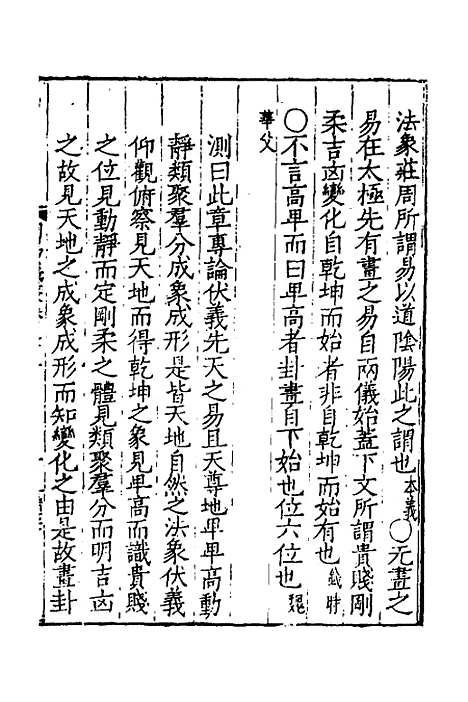 法象莊周所謂易以道陰陽此之謂也本義〇无畫之
易在太極先有畫之易自兩儀始蓋下文所謂貴賤剛
柔吉凶變化自乾坤而始者非自乾坤而始有也
〇不言高卑而曰卑高者卦畫自下始也位六位也魏
華父
測曰此章專論伏羲先天之易且天尊地卑卑高動
靜類聚羣分成象成形是皆天地自然之法象伏羲
仰觀俯察見天地而得乾坤之象見卑高而識貴賤
之位見動靜而定剛柔之體見類聚羣分而明吉凶
之故見天地之成象成形而知變化之由是故畫卦